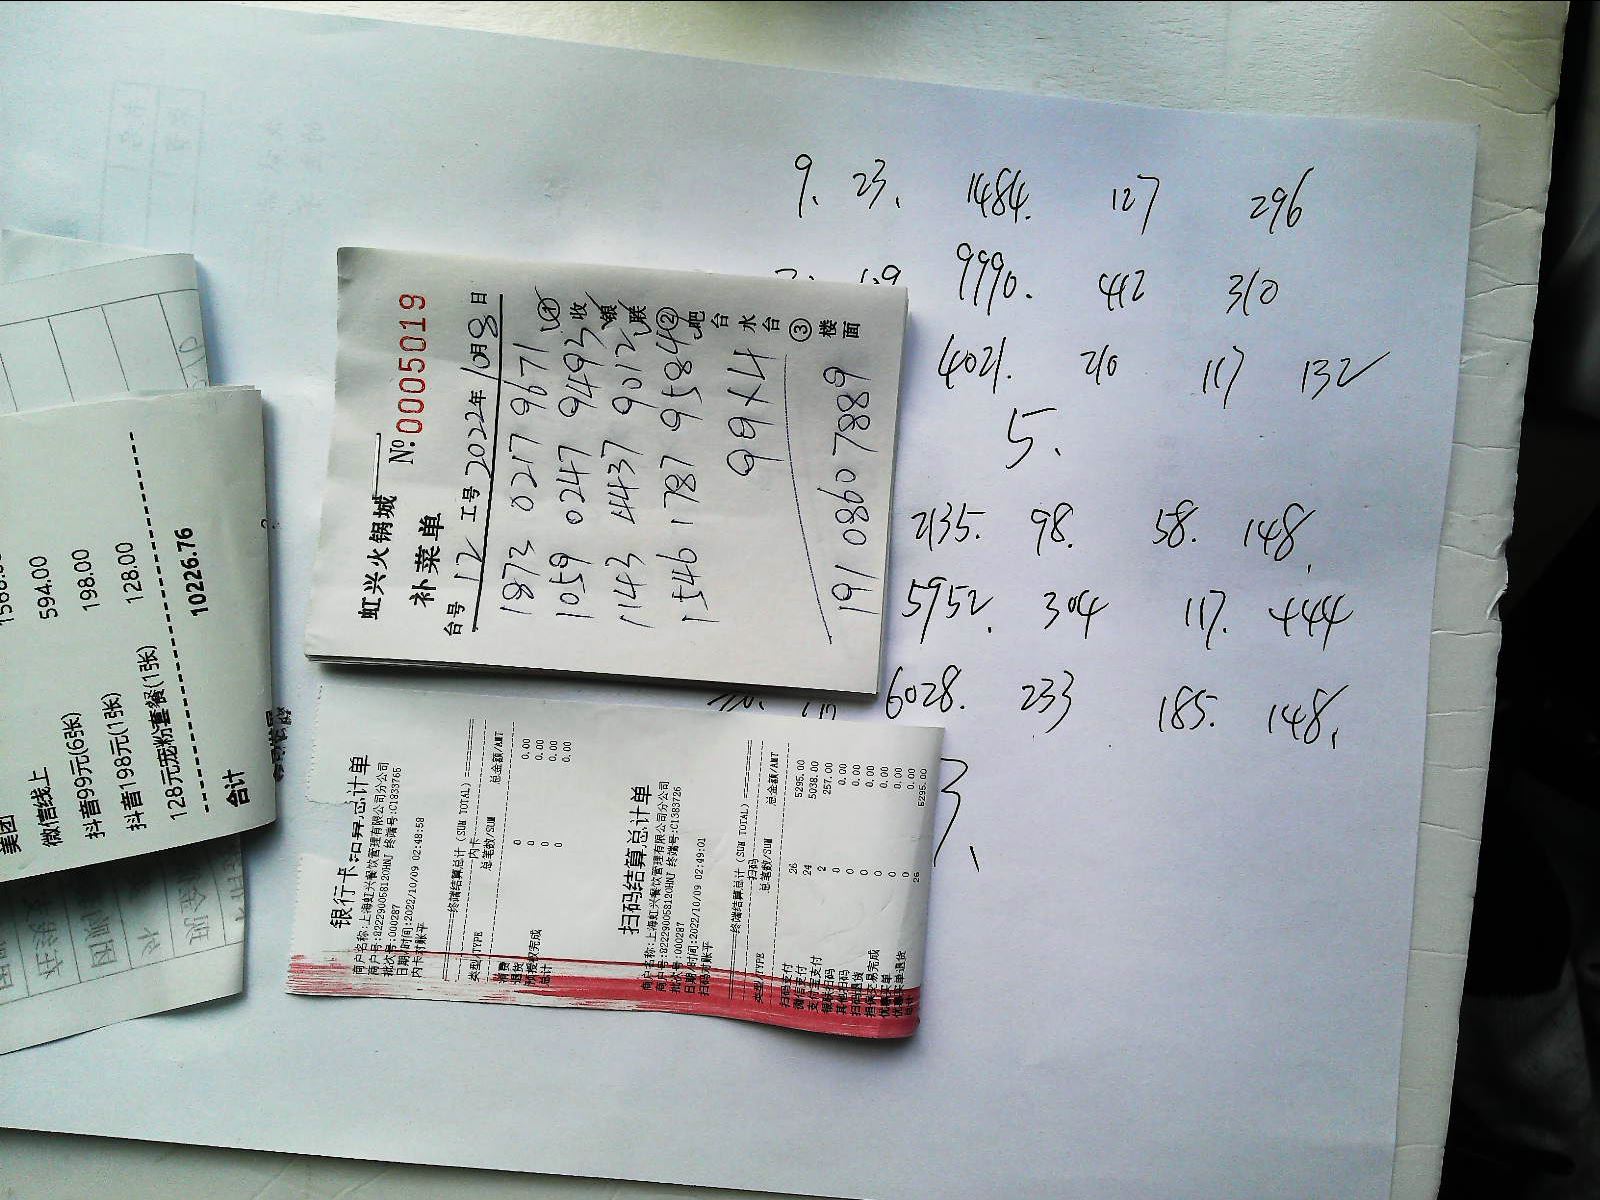 美团
微信线上 594.00
抖音99元(6张) 198.00
抖音198元(1张) 128.00
128元宠粉套餐(1张)
合计 10226.76
虹兴火锅城
补菜单 №:0005019
台号 12 工号 2022年10月8日
1873 0217 9671
1059 0247 9493
1143 4437 9012
1546 1787 9584
99X4
191 0860 7889
收银联
②吧台水台
③楼面
银行卡结算总计单
商户名称:上海虹兴餐饮管理有限公司分公司
商户号:82229005812 0HNJ 终端号:C1833765
批次号:000287
日期/时间:2022/10/09 02:48:58
内卡对账平
终端结算总计(SUM TOTAL)
内卡
类型/TYPE 总笔数/SUM 总金额/AMT
消费 0 0.00
退货 0 0.00
预授权完成 0 0.00
总计 0 0.00
扫码结算总计单
商户名称:上海虹兴餐饮管理有限公司分公司
商户号:82229005812 0HNJ 终端号:C1383726
批次号:000287
日期/时间:2022/10/09 02:49:01
扫码对账平
终端结算总计(SUM TOTAL)
扫码
类型/TYPE 总笔数/SUM 总金额/AMT
扫码支付 26 5295.00
微信支付 24 5038.00
支付宝支付 2 257.00
银联扫码 0 0.00
其他扫码 0 0.00
扫码退货 0 0.00
担保交易完成 0 0.00
优惠买单 0 0.00
优惠买单退货 0 0.00
总计 26 5295.00
9. 23. 1484. 127 296
9990. 442 310
4021. 210 117 132
5.
2135. 98. 58. 148.
5952. 304 117. 444
6028. 233 185. 148.
3.